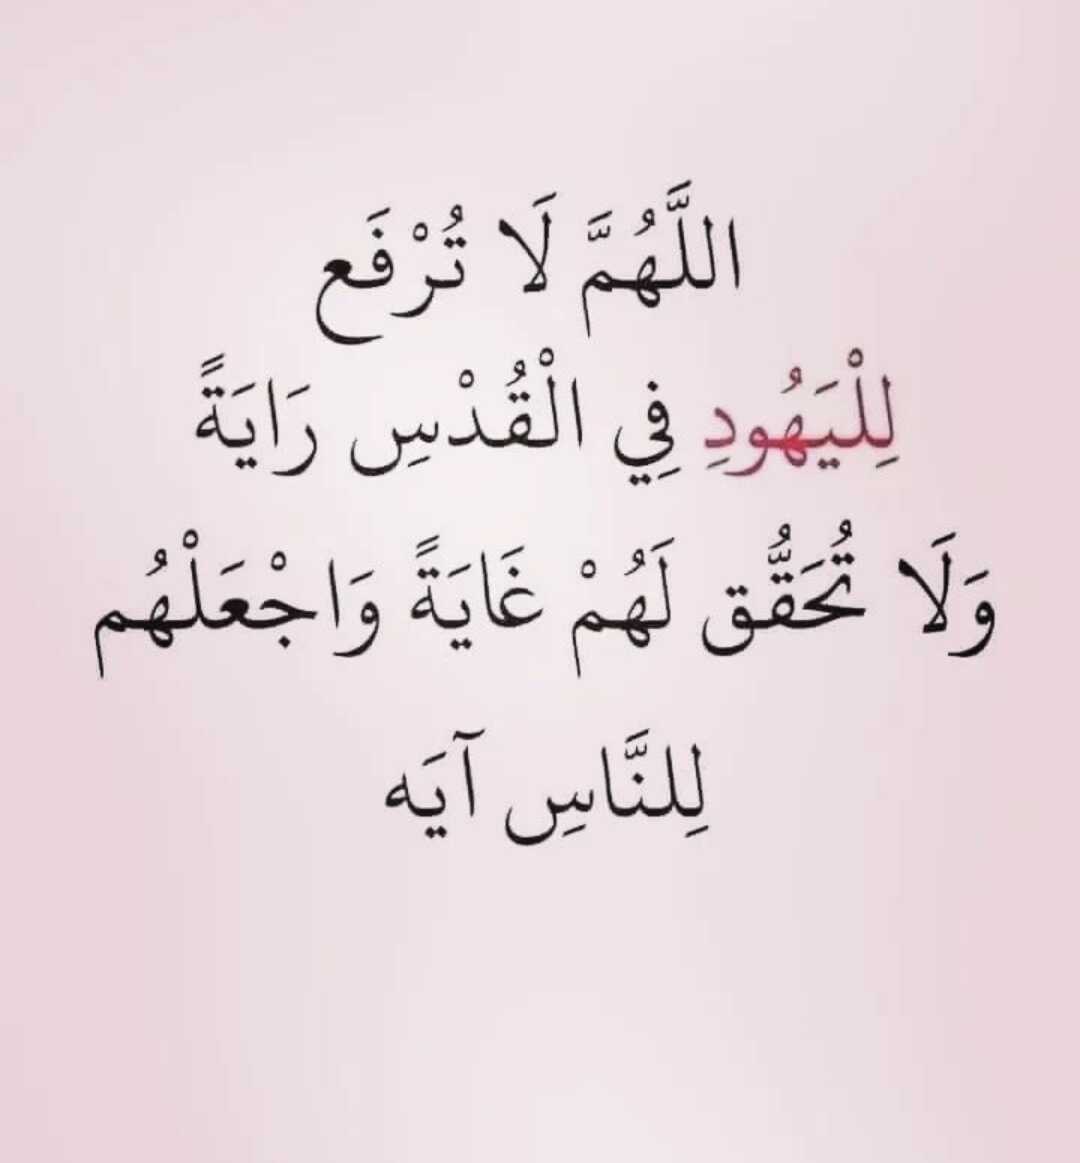 اللَّهُمَّ لَا تُرْفَع
لِلْيَهُودِ فِي الْقُدْسِ رَايَةً
وَلَا تُحَقُّق لَهُمْ غَايَةً وَاجْعَلْهُم
لِلنَّاسِ آيَه